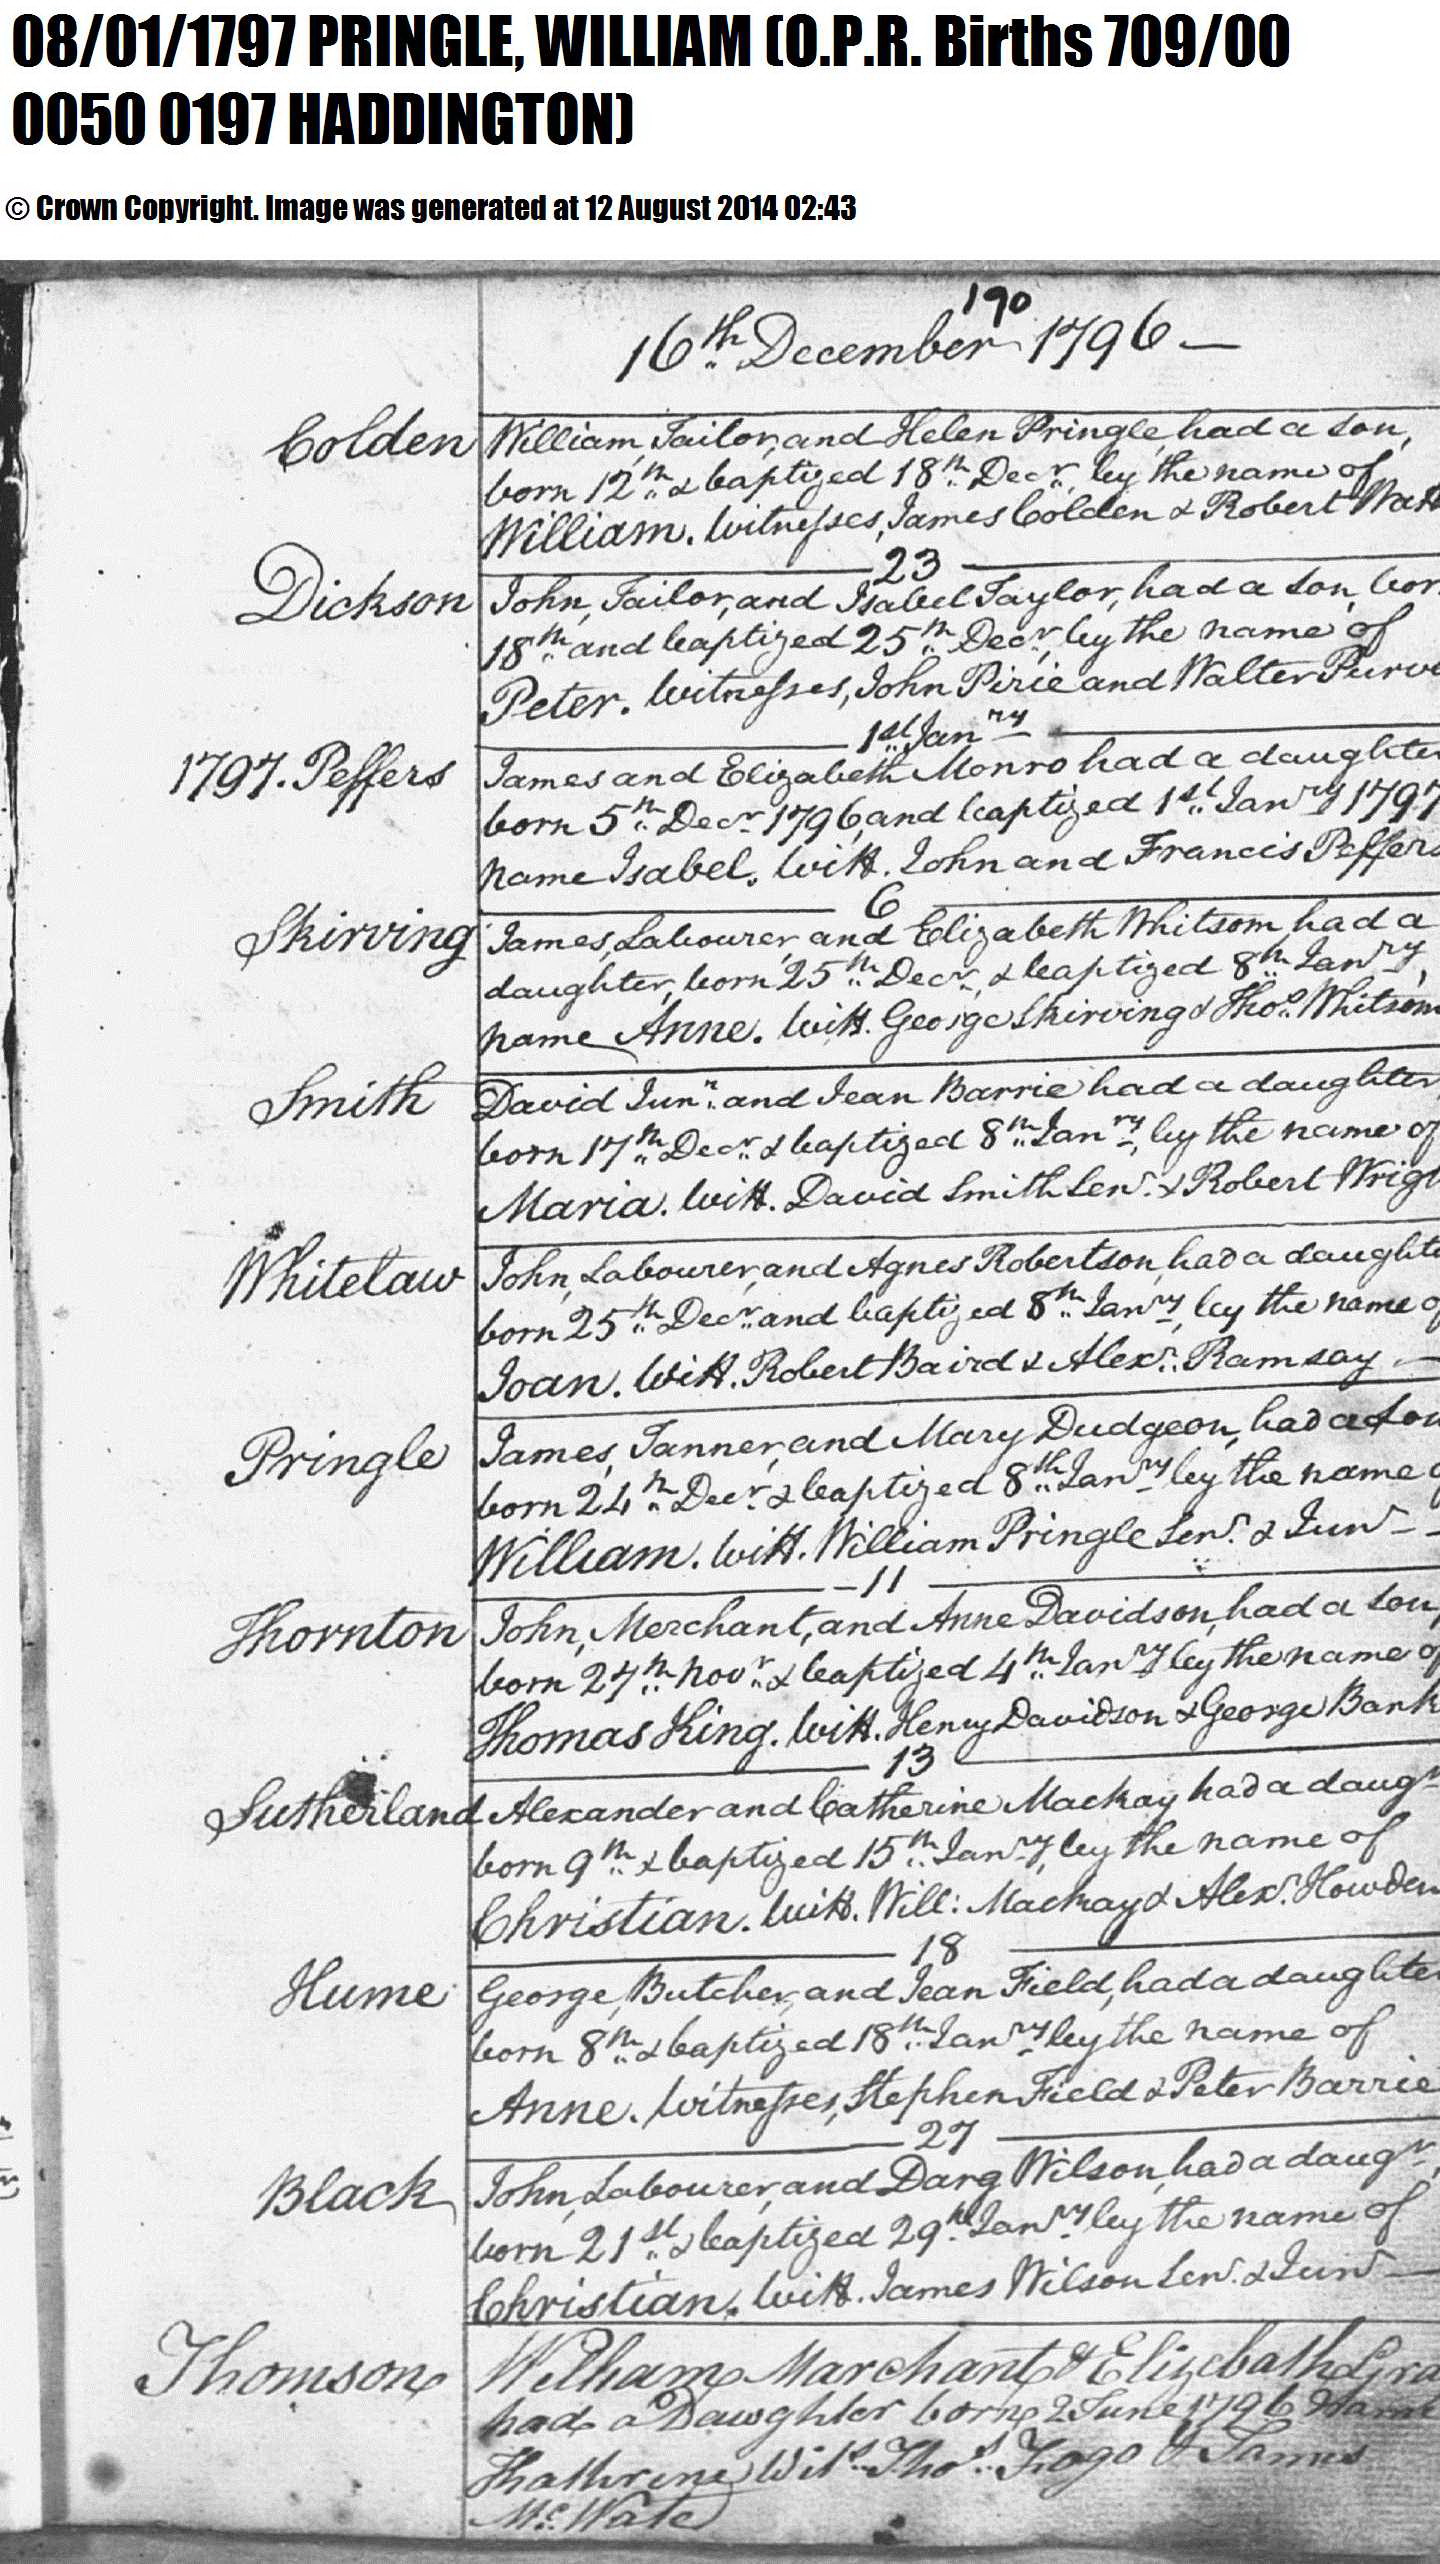 08/01/1797 PRINGLE, WILLIAM (O.P.R. Births 709/00
0050 0197 HADDINGTON)
© Crown Copyright. Image was generated at 12 August 2014 02:43
190
16th December 1796 —
Colden William, Tailor, and Helen Pringle, had a son,
born 12th & baptized 18th Decr, by the name of
William. Witnesses, James Colden & Robert Watt
23
Dickson John, Tailor, and Isabel Taylor, had a son, bor
18th and baptized 25th Decr, by the name of
Peter. Witnesses, John Pirie and Walter Purve
1st Janry
1797. Peffers James and Elizabeth Monro had a daughter
born 5th Decr 1796, and baptized 1st Janry 1797
name Isabel. Witt. John and Francis Peffers
6
Skirving James, Labourer, and Elizabeth Whitsom, had a
daughter, born 25th Decr, & baptized 8th Janry,
name Anne. Witt. George Skirving & Thos. Whitsom
Smith David Junr. and Jean Barrie had a daughter,
born 17th Decr & baptized 8th Janry, by the name of
Maria. Witt. David Smith Senr. & Robert Wrigt
Whitelaw John, Labourer, and Agnes Robertson, had a daughte
born 25th Decr and baptized 8th Janry, by the name of
Joan. Witt. Robert Baird & Alexr. Ramsay —
Pringle James, Tanner, and Mary Dudgeon, had a son
born 24th Decr & baptized 8th Janry by the name o
William. Witt. William Pringle Senr. & Junr — —
11
Thornton John, Merchant, and Anne Davidson, had a son,
born 27th Novr & baptized 4th Janry by the name of
Thomas King. Witt. Henry Davidson & George Bank
13
Sutherland Alexander and Catherine Mackay had a daugr
born 9th & baptized 15th Janry, by the name of
Christian. Witt. Will: Mackay & Alexr. Howden
18
Hume George, Butcher, and Jean Field, had a daughter
born 8th & baptized 18th Janry by the name of
Anne. Witnesses, Stephen Field & Peter Barrie
27
Black John, Labourer, and Darg Wilson, had a daugr,
born 21st & baptized 29th Janry by the name of
Christian. Witt. James Wilson Senr. & Junr —
Thomson William Marchant & Elizebath Gra
had a Dawghter born 2 June 1796 Namt
Kathrine Wits. Thos. Fogo & James
Mc. Wate